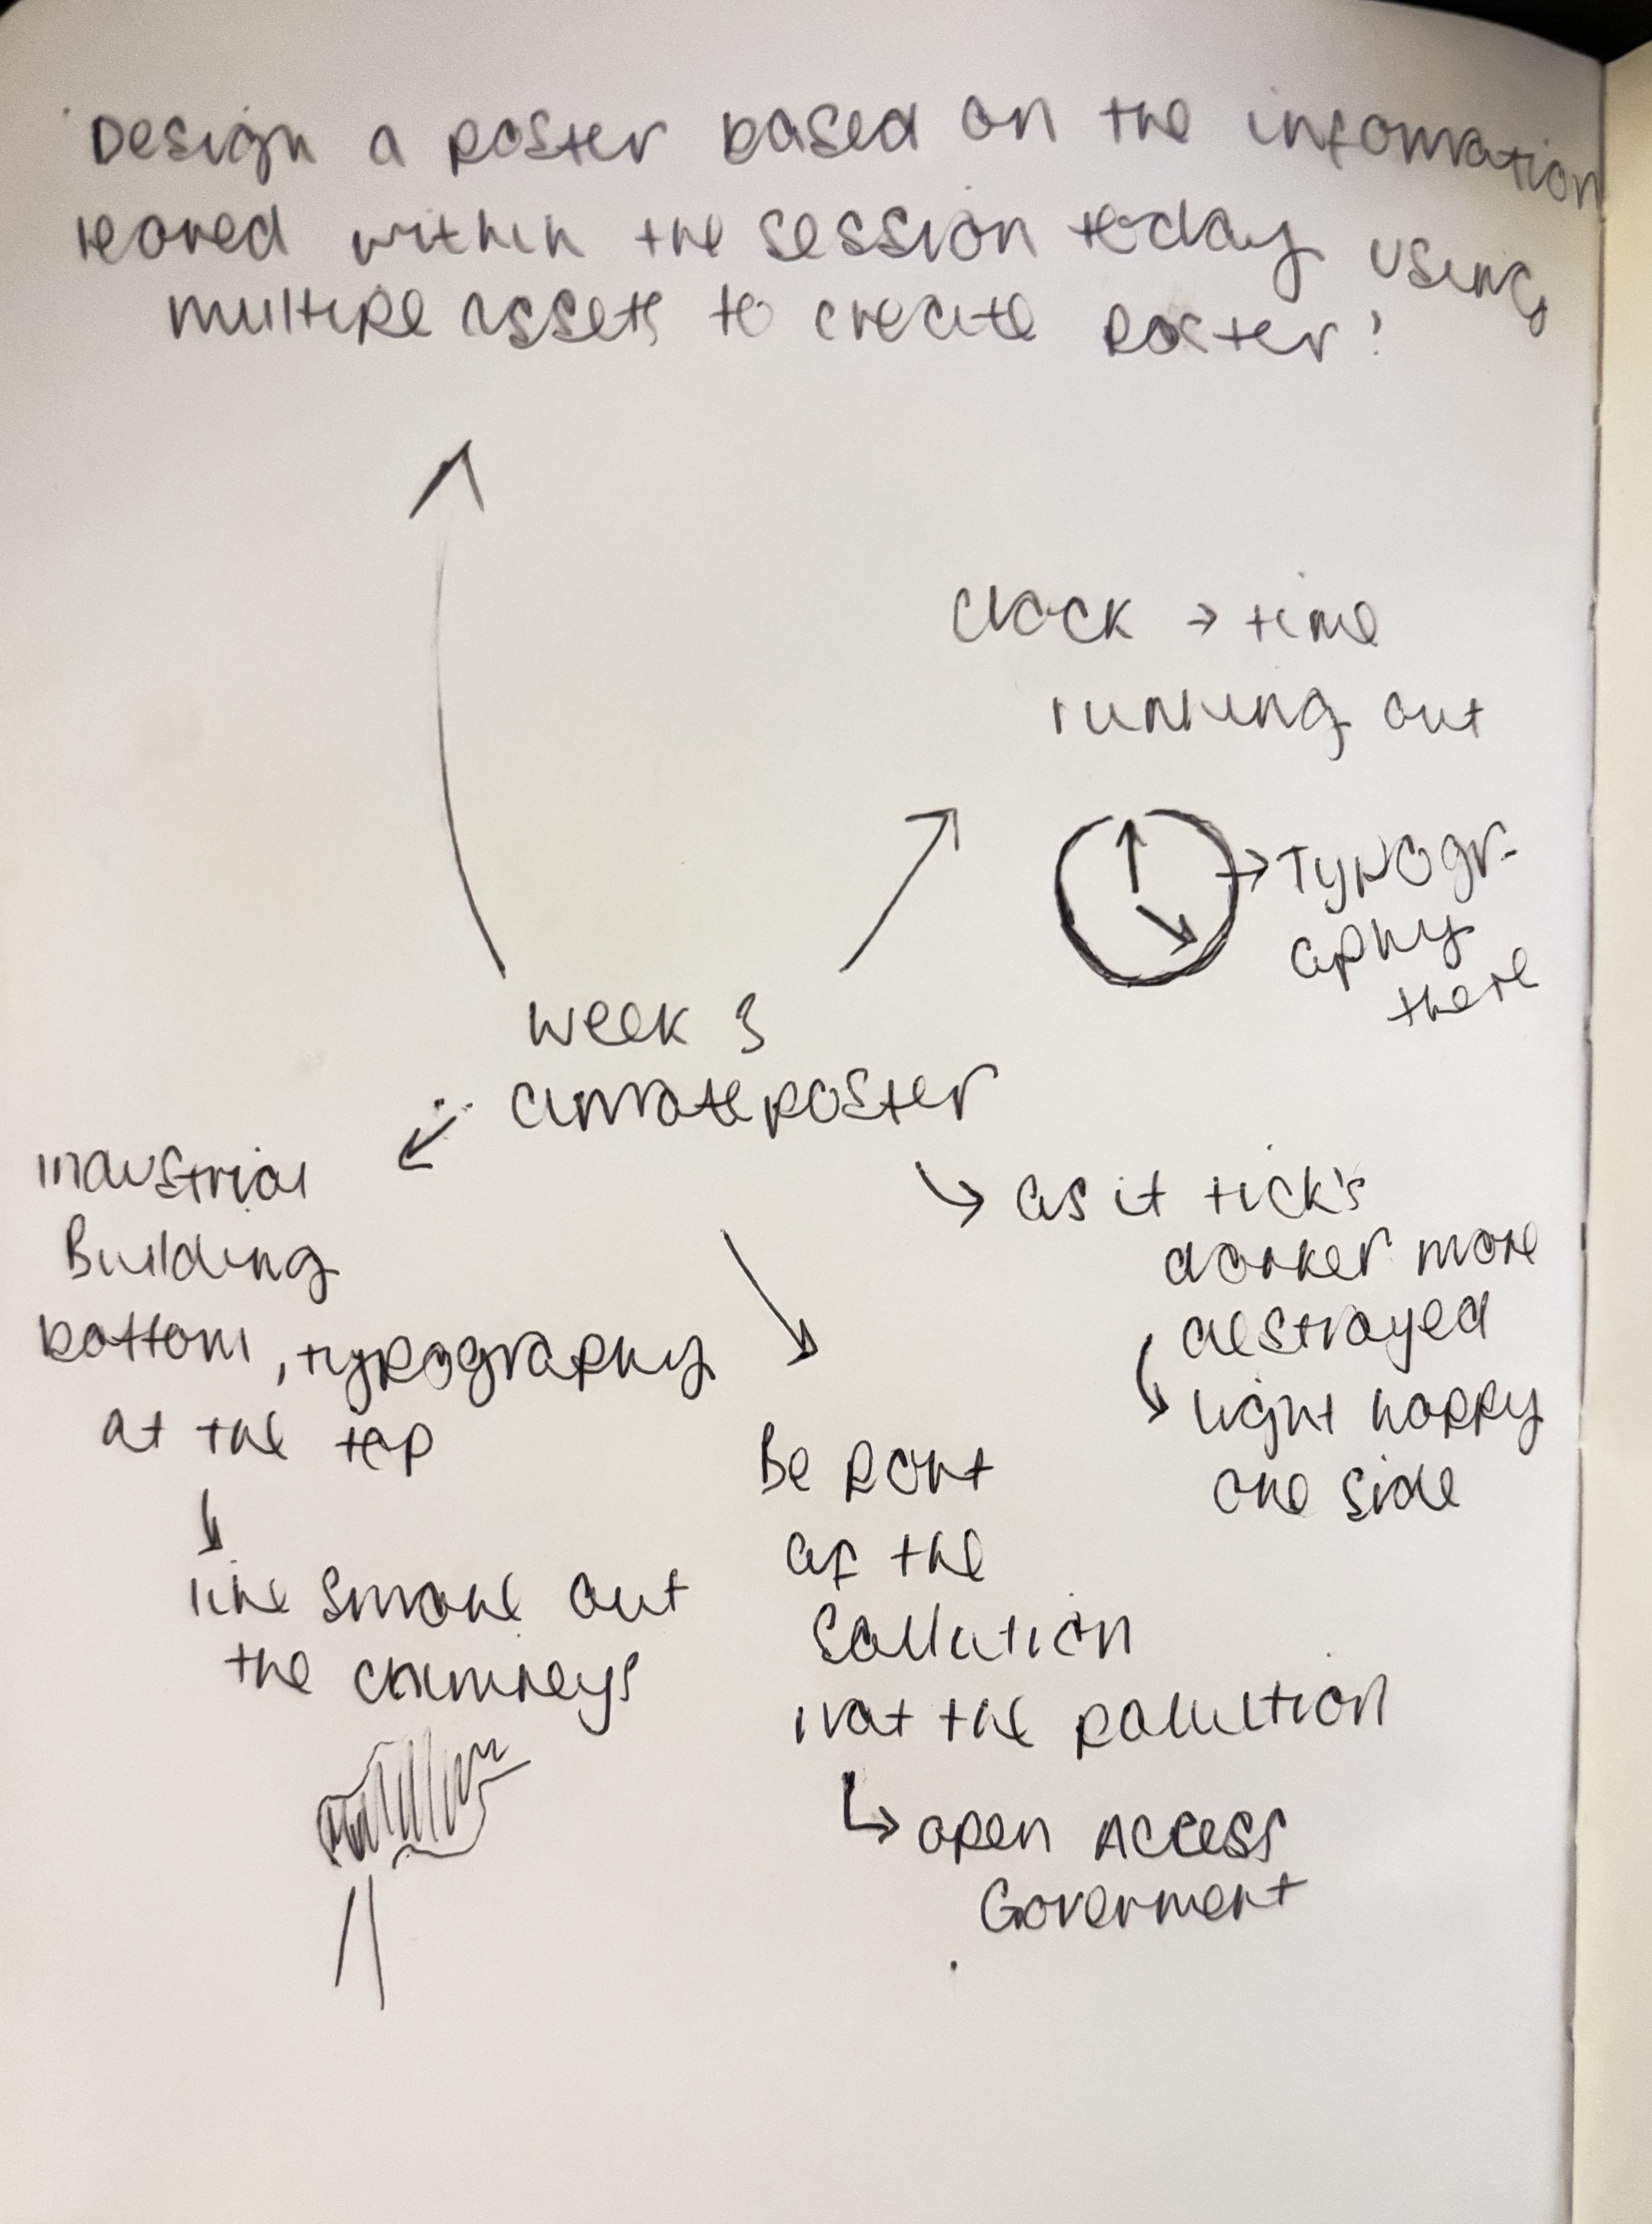 Design a poster based on the infomration
leared within the session today using
multiple assets to create poster!
clock → time
running out
→ Typogr-
aphy
there
week 3
climate poster
industrial
Building
bottom, typography
at the top
like smoke out
the chimneys
as it tick's
darker more
destroyed
light happy
one side
Be part
of the
Sollution
not the pollution
open Access
Goverment